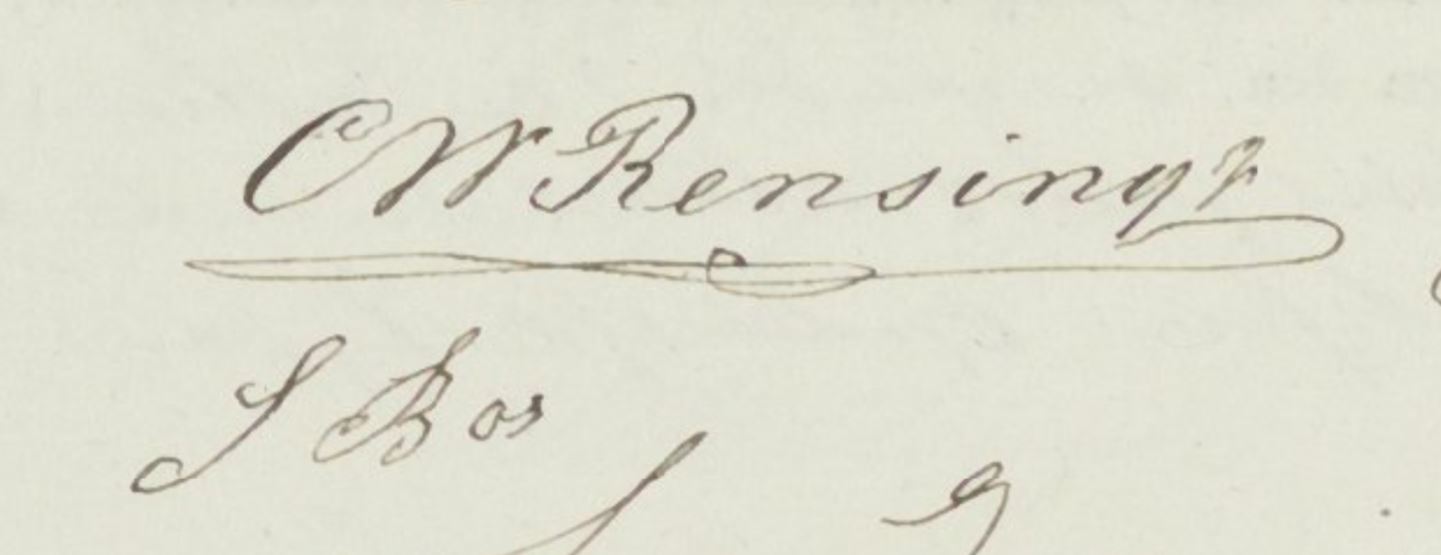 C W Rensing
S Bos